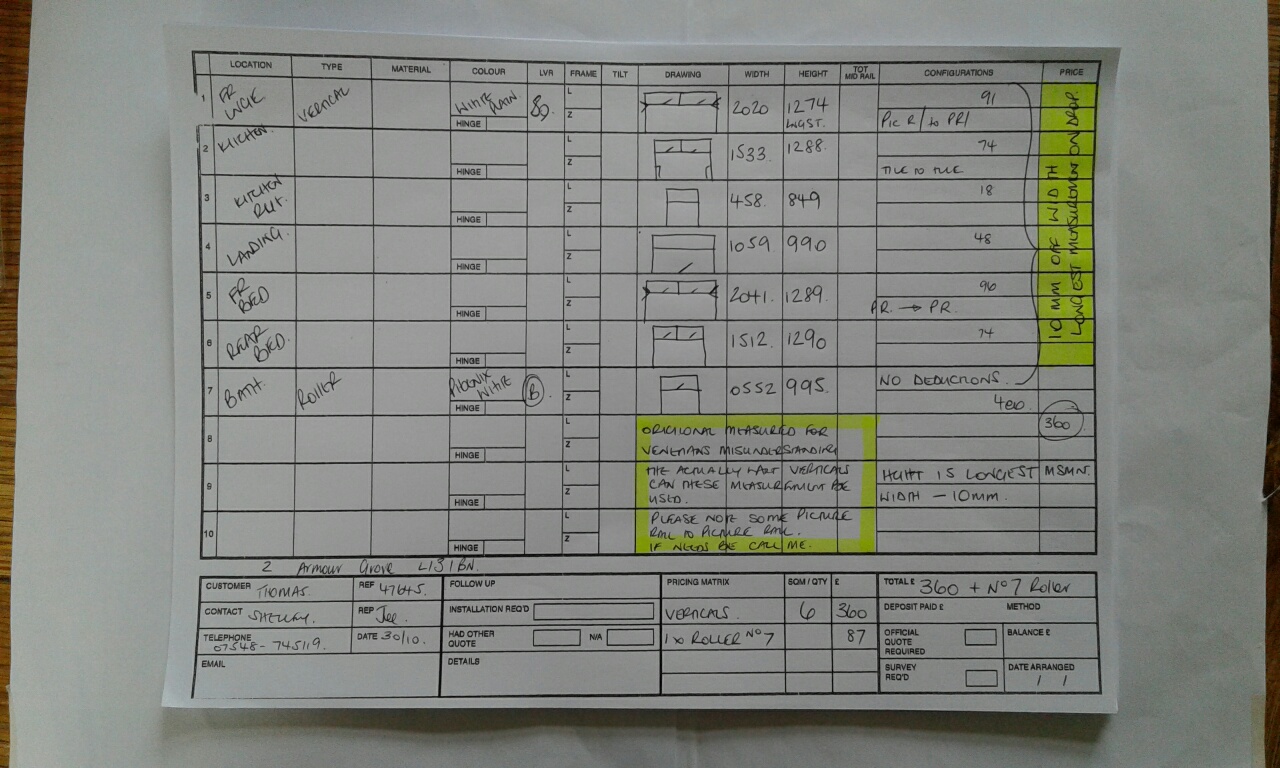 LOCATION TYPE MATERIAL COLOUR LVR FRAME TILT DRAWING WIDTH HEIGHT TOT MID RAIL CONFIGURATIONS PRICE
1 FR VERTICAL WHITE PLAIN L 2020 1274 91
HINGE Z LNGST. PIC R/ to PR/
2 KITCHEN. L 1533. 1288. 74
HINGE Z TILE TO TILE
3 KITCHEN L 458. 849 18
HINGE Z
4 LANDING. L 1059 990 48
HINGE Z
5 FR BED L 2041. 1289. 90
HINGE Z PR. → PR.
6 REAR BED. L 1512. 1290 74
HINGE Z
7 BATH. ROLLER PHOENIX WHITE B. L 0552 995. NO DEDUCTIONS.
HINGE Z 400
10 MM OFF WIDTH
LONGEST MEASUREMENT ON DROP.
360
8 L ORIGIONAL MEASURED FOR
HINGE Z VENETIANS MISUNDERSTANDING
9 L THE ACTUALLY WANT VERTICALS HGHT IS LONGEST MSMNT.
HINGE Z CAN THESE MEASUREMENT BE WIDTH - 10MM.
USED.
10 L PLEASE NOTE SOME PICTURE
HINGE Z RAIL TO PICTURE RAIL.
IF NEEDS BE CALL ME.
2 Armour Grove L13 1BN.
CUSTOMER THOMAS. REF 47645. FOLLOW UP PRICING MATRIX SQM / QTY £ TOTAL £ 360 + Nº7 Roller
CONTACT SHELLEY. REP Joe. INSTALLATION REQ'D VERTICALS. 6 360 DEPOSIT PAID £ METHOD
TELEPHONE 07548-745119. DATE 30/10. HAD OTHER QUOTE N/A 1 x ROLLER Nº7 87 OFFICIAL QUOTE REQUIRED BALANCE £
EMAIL DETAILS SURVEY REQ'D DATE ARRANGED
/ /